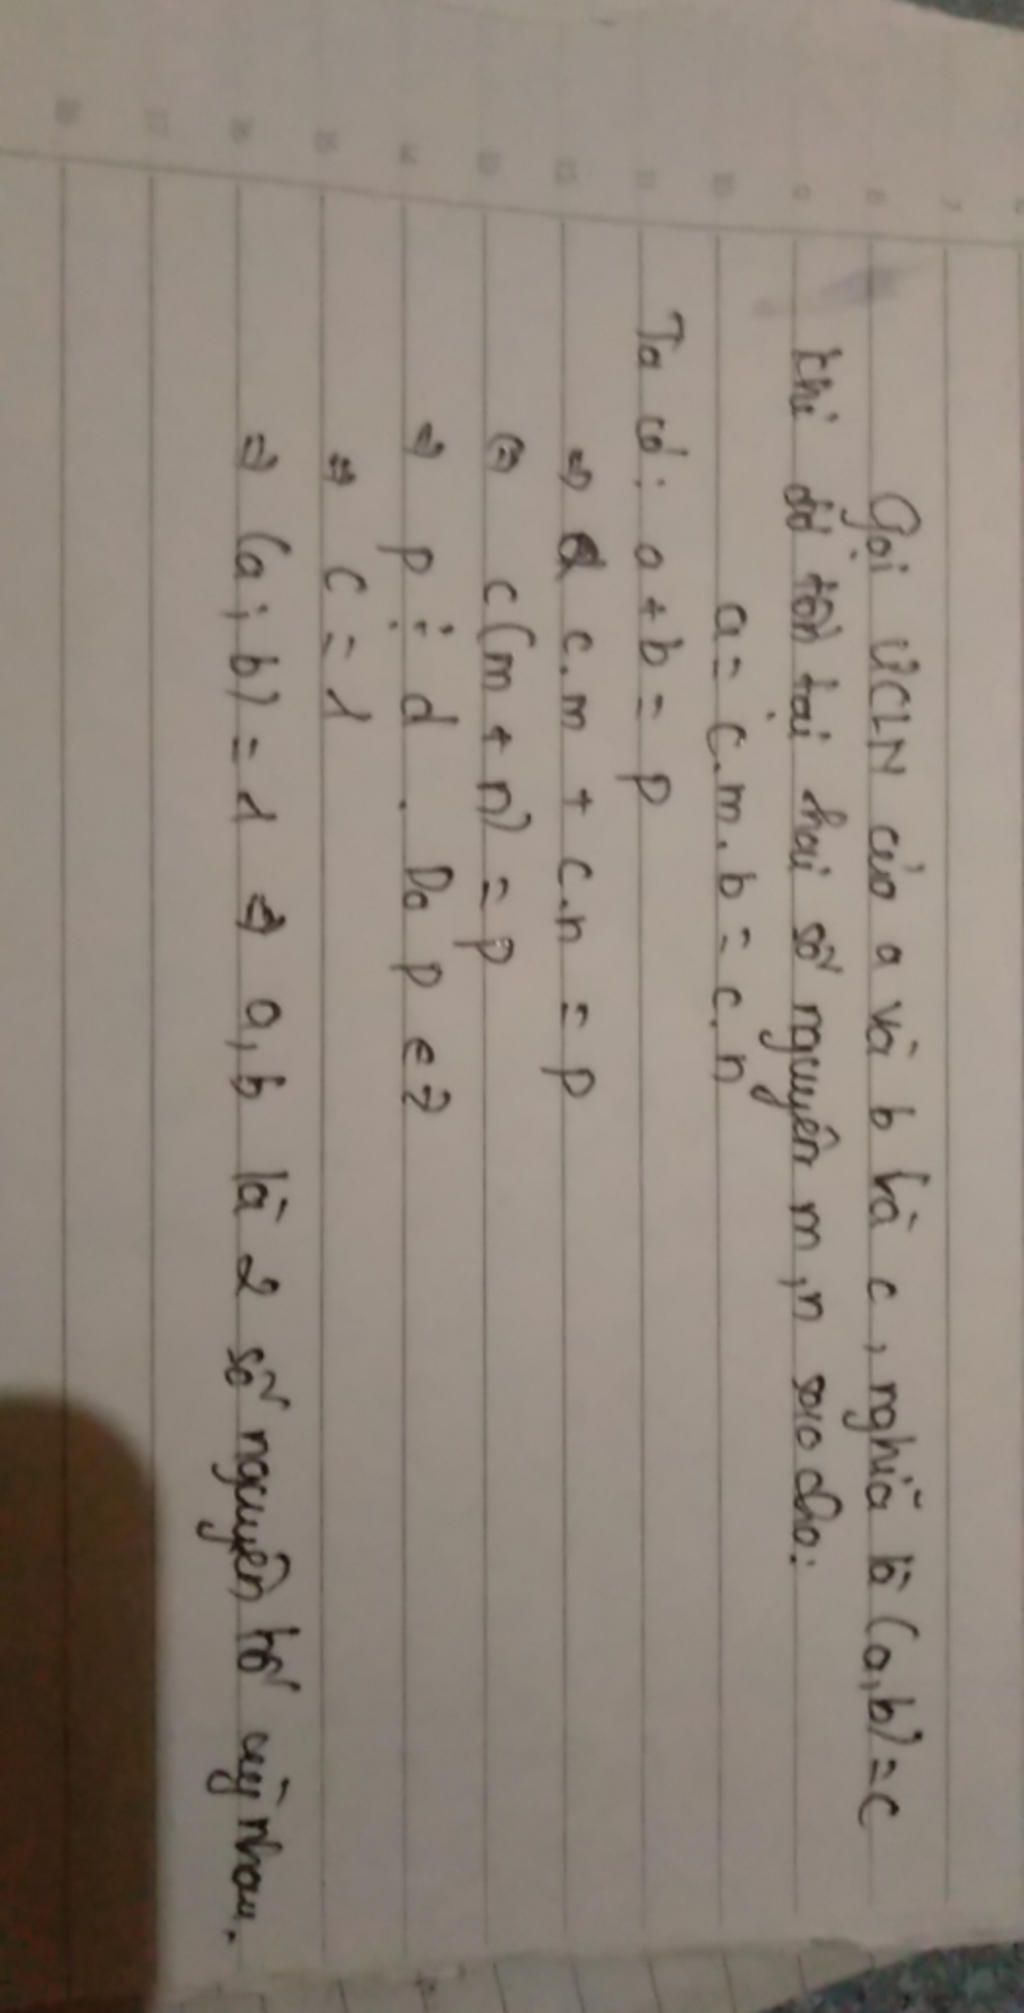 Gọi ƯCLN của a và b là c, nghĩa là (a,b)=c
Khi đó tồn tại hai số nguyên m,n sao cho:
a = c.m. b = c.n
Ta có: a+b = p
⇒ c.m + c.n = p
⇔ c(m+n) = p
⇒ p ⋮ d. Do p ∈
⇒ c = 1
⇒ (a;b) = 1 ⇒ a,b là 2 số nguyên tố cùng nhau.